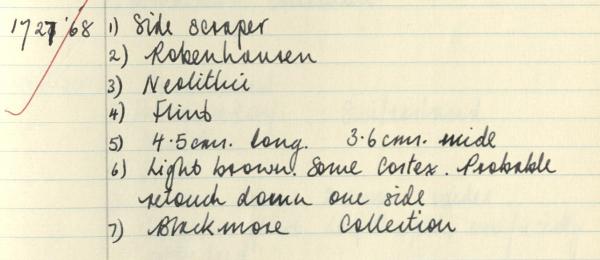 1727'68 1) Side scraper
2) Robenhausen
3) Neolithic
4) Flint
5) 4.5cms. long. 3.6cms. wide
6) Light brown. Some Cortex. Probable
retouch down one side
7) Blackmore Collection